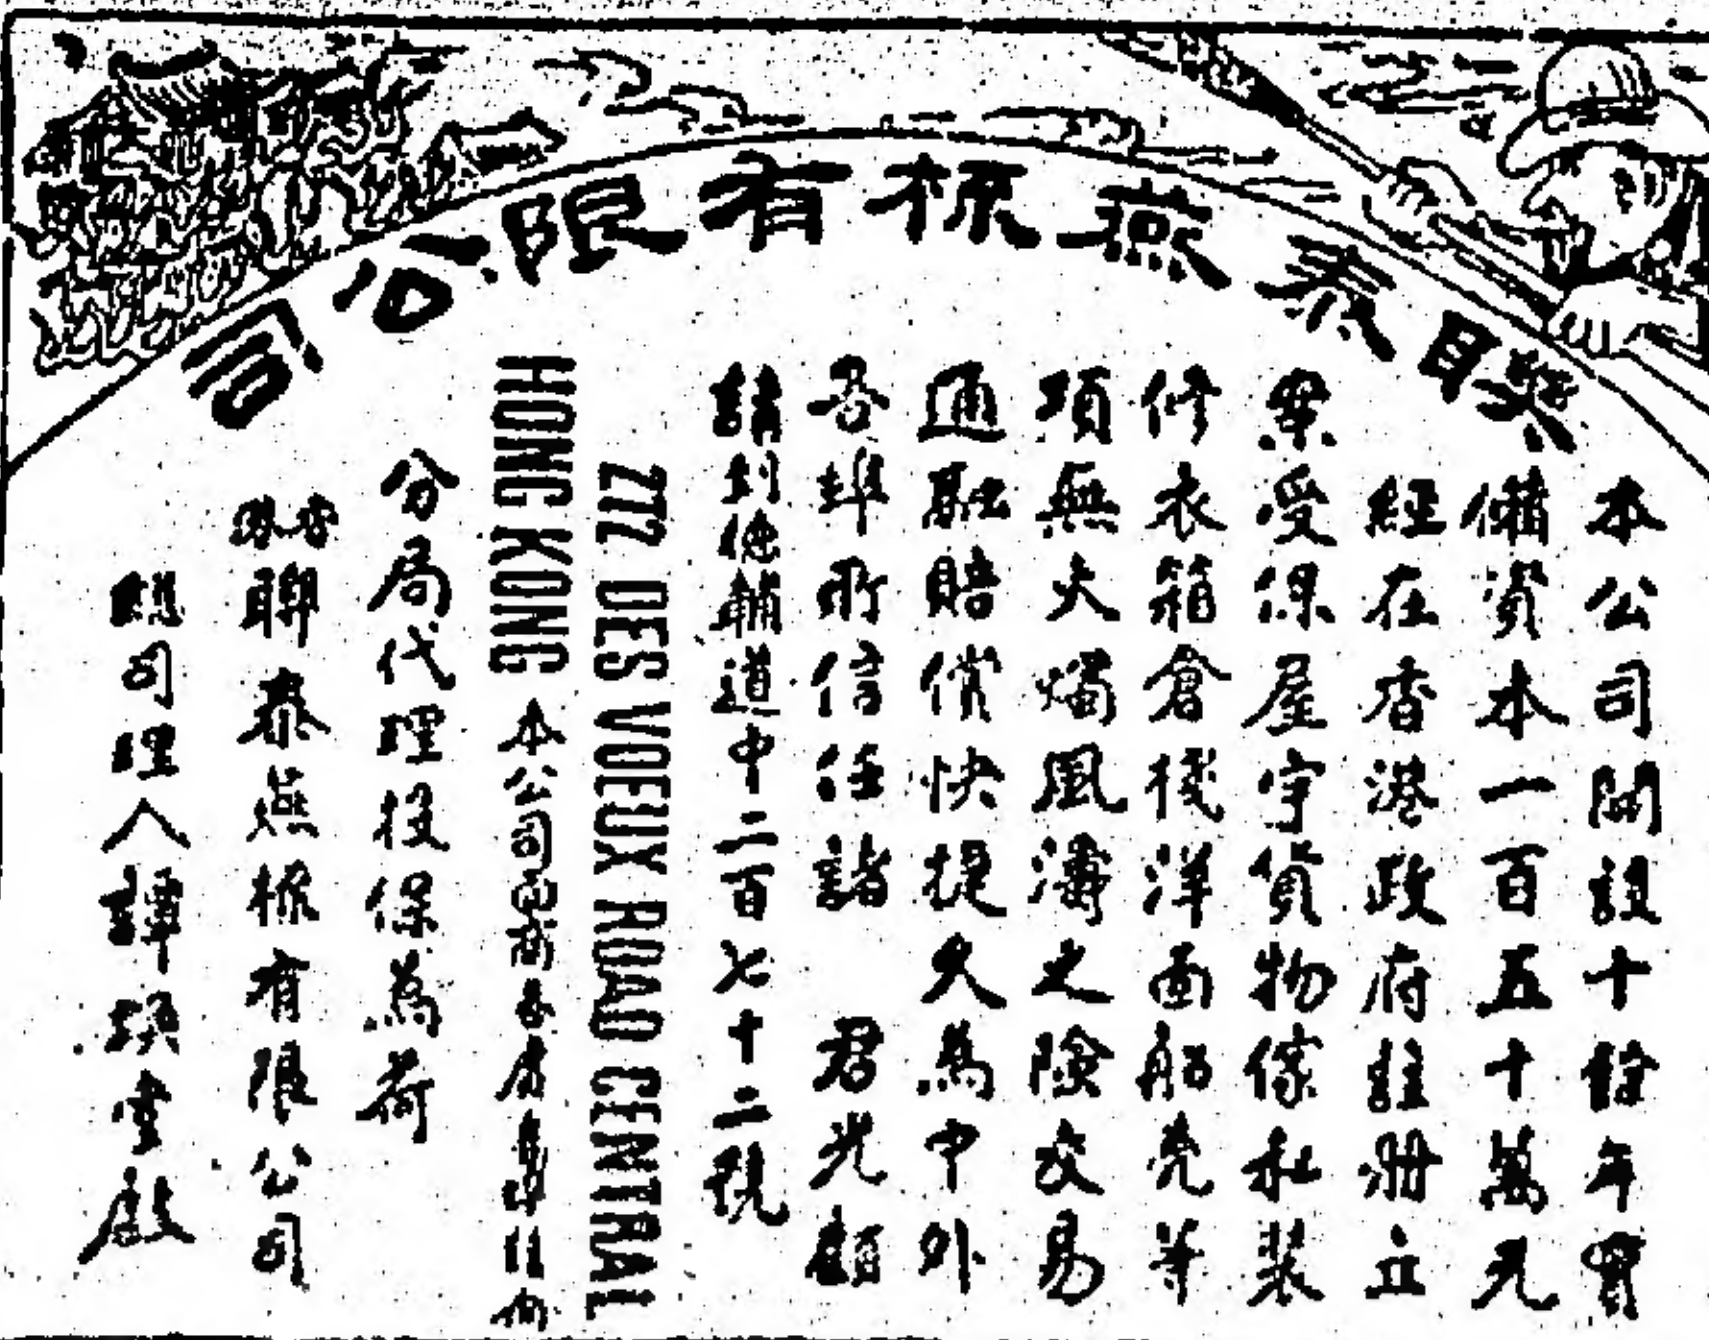 聯泰燕梳有限公司
本公司開設十餘年實
備資本一百五十萬元
經在香港政府註冊立
案受保屋宇貨物傢私裝
修衣箱倉棧洋面船壳等
項無火燭風濤之險交易
通融賠償快捷久為中外
各埠所信任諸 君光顧
請到德輔道中二百七十二號
272 DES VOEUX ROAD CENTRAL
HONG KONG 本公司
分局代理投保為荷
香港聯泰燕梳有限公司
總司理人譚煥堂啟